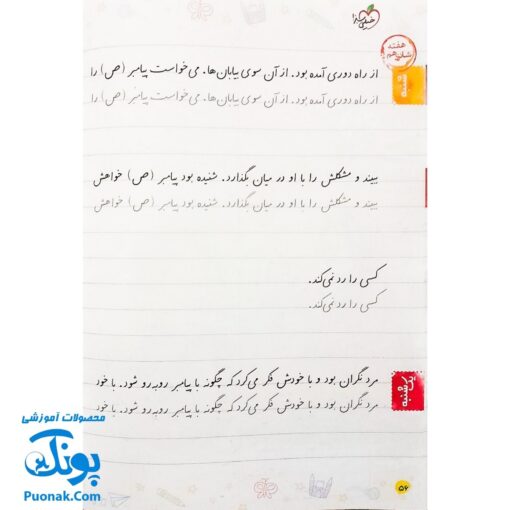 خیلی سبز
هفته
شانزدهم
شنبه
از راه دوری آمده بود. از آن سوی بیابان‌ها. می‌خواست پیامبر (ص) را
از راه دوری آمده بود. از آن سوی بیابان‌ها. می‌خواست پیامبر (ص) را
ببیند و مشکلش را با او در میان بگذارد. شنیده بود پیامبر (ص) خواهش
ببیند و مشکلش را با او در میان بگذارد. شنیده بود پیامبر (ص) خواهش
کسی را رد نمی‌کند.
کسی را رد نمی‌کند.
یک‌شنبه
مرد نگران بود و با خودش فکر می‌کرد که چگونه با پیامبر روبه‌رو شود. با خود
مرد نگران بود و با خودش فکر می‌کرد که چگونه با پیامبر روبه‌رو شود. با خود
محصولات آموزشی
پونک
Puonak.Com
۵۶